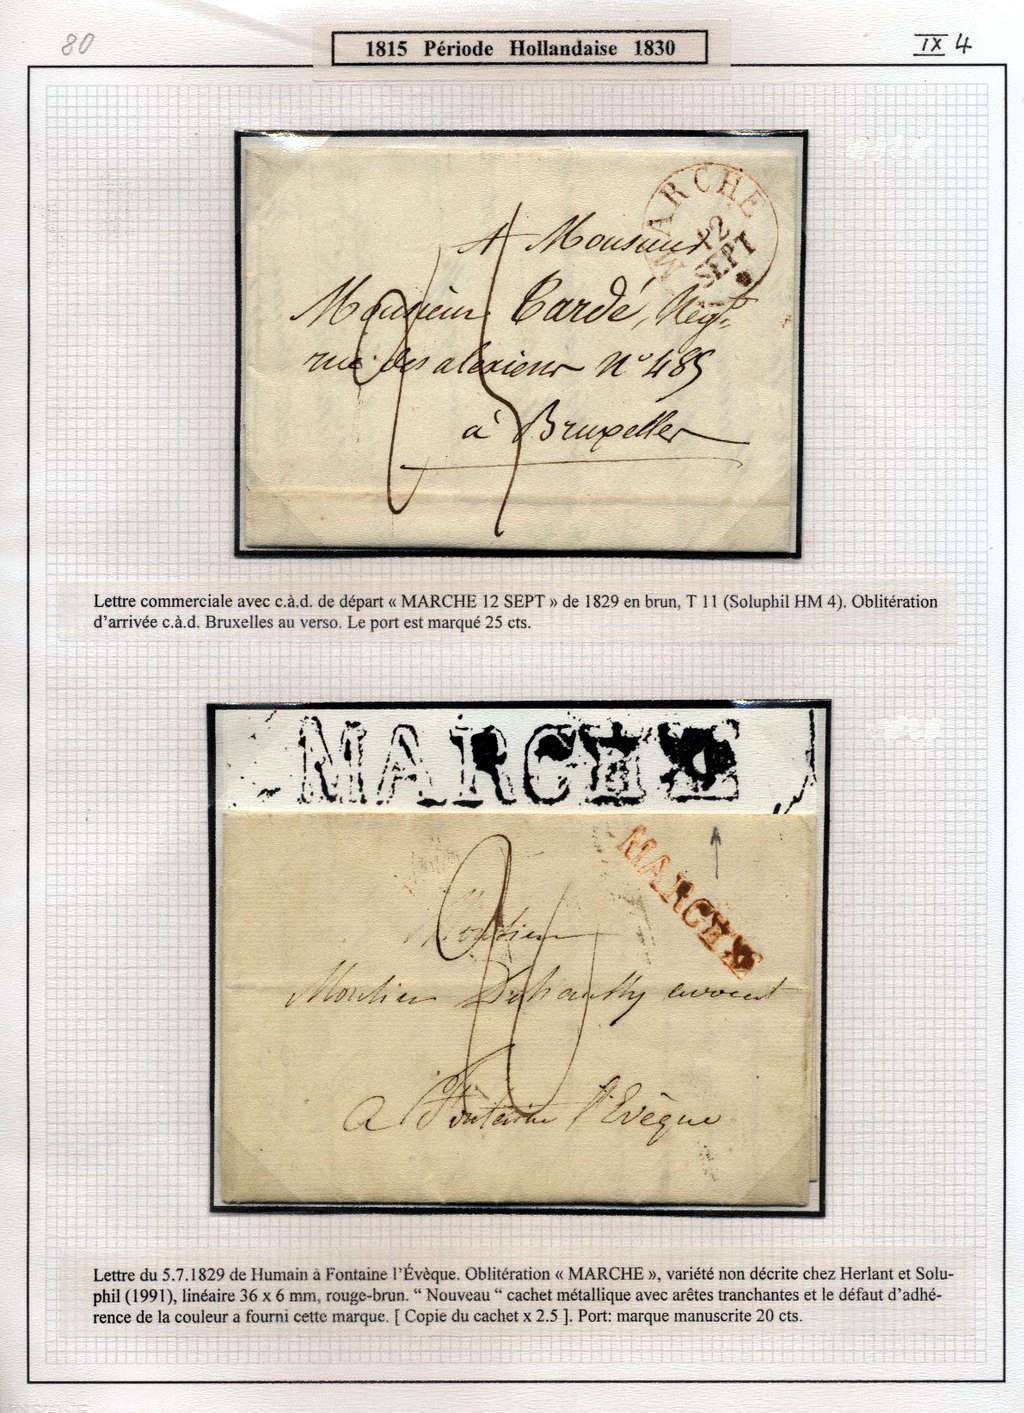 80
1815 Période Hollandaise 1830
IX 4
MARCHE
12
SEPT
A Monsieur
Monsieur Tardé, Negt.
rue des alexiens N° 485
à Bruxelles
25
Lettre commerciale avec c.à.d. de départ « MARCHE 12 SEPT » de 1829 en brun, T 11 (Soluphil HM 4). Oblitération
d’arrivée c.à.d. Bruxelles au verso. Le port est marqué 25 cts.
MARCHE
MARCHE
Monsieur
Monsieur avocat
20
a Fontaine l'Evèque
Lettre du 5.7.1829 de Humain à Fontaine l’Évèque. Oblitération « MARCHE », variété non décrite chez Herlant et Solu-
phil (1991), linéaire 36 x 6 mm, rouge-brun. “ Nouveau “ cachet métallique avec arêtes tranchantes et le défaut d’adhé-
rence de la couleur a fourni cette marque. [ Copie du cachet x 2.5 ]. Port: marque manuscrite 20 cts.